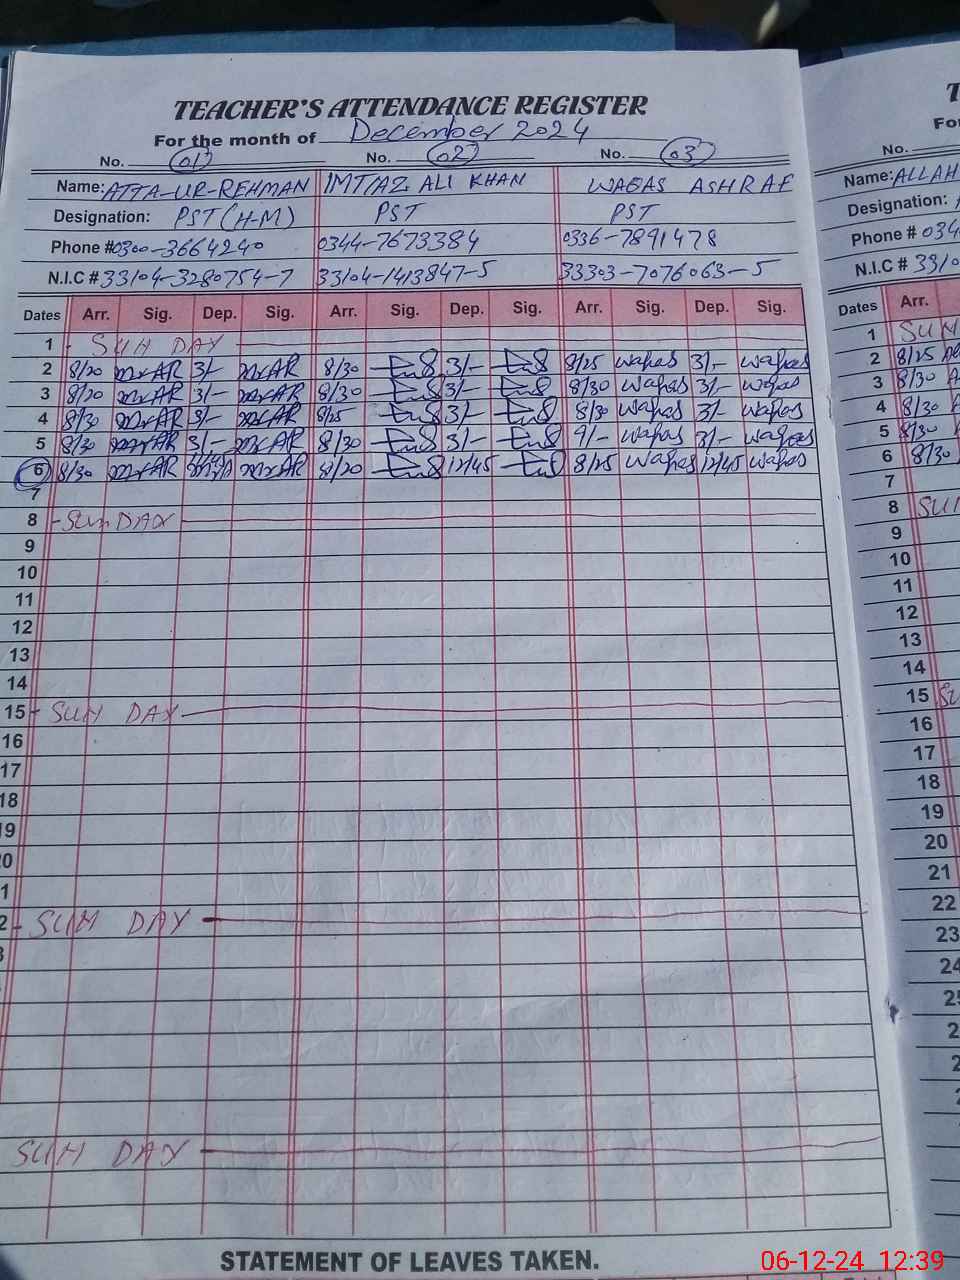 TEACHER'S ATTENDANCE REGISTER
For the month of December 2024
No. 01 No. 02 No. 03
Name: ATTA-UR-REHMAN IMTIAZ ALI KHAN WAQAS ASHRAF
Designation: PST (H-M) PST PST
Phone # 0300-3664240 0344-7673384 0336-7891478
N.I.C # 33104-3280754-7 33104-1413847-5 33303-7076063-5
Dates Arr. Sig. Dep. Sig. Arr. Sig. Dep. Sig. Arr. Sig. Dep. Sig.
1 SUN DAY
2 8/20 3/- 8/30 3/- 8/25 waqas 3/- waqas
3 8/20 3/- 8/30 3/- 8/30 waqas 3/- waqas
4 8/30 3/- 8/25 3/- 8/30 waqas 3/- waqas
5 8/30 3/- 8/30 3/- 9/- waqas 3/- waqas
6 8/30 8/20 12/45 8/25 waqas 12/45 waqas
7
8 SunDAY
9
10
11
12
13
14
15 SUN DAY
16
17
18
19
20
21
22 SUN DAY
SUN DAY
STATEMENT OF LEAVES TAKEN.
No.
Name: ALLAH
Designation:
Phone # 034
N.I.C #
Dates Arr.
1 SUN
2 8/25
3 8/30
4 8/30
5 8/30
6 8/30
7
8 SU
9
10
11
12
13
14
15
16
17
18
19
20
21
22
23
24
06-12-24 12:39